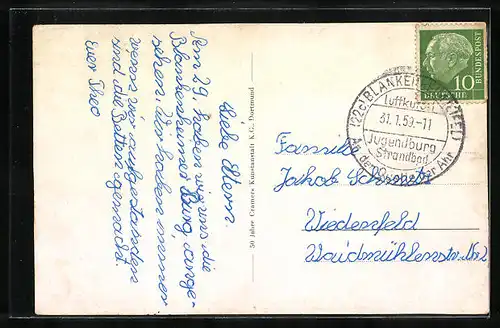 Liebe Eltern.
Am 29. haben wir uns die
Blankenheimer Burg ange-
sehen. Wir haben immer
wenn wir aufgestanden
sind die Betten gemacht.
Euer Theo
50 Jahre Cramers Kunstanstalt K.G., Dortmund
10
DEUTSCHE
BUNDESPOST
(22c) BLANKENHEIM (EIFEL)
Luftkurort
31.1.59.-11
Jugendburg
Strandbad
An der Quelle der Ahr
Familie
Jakob
Wiedenfeld
Waidmühlenstr. Nr. 2